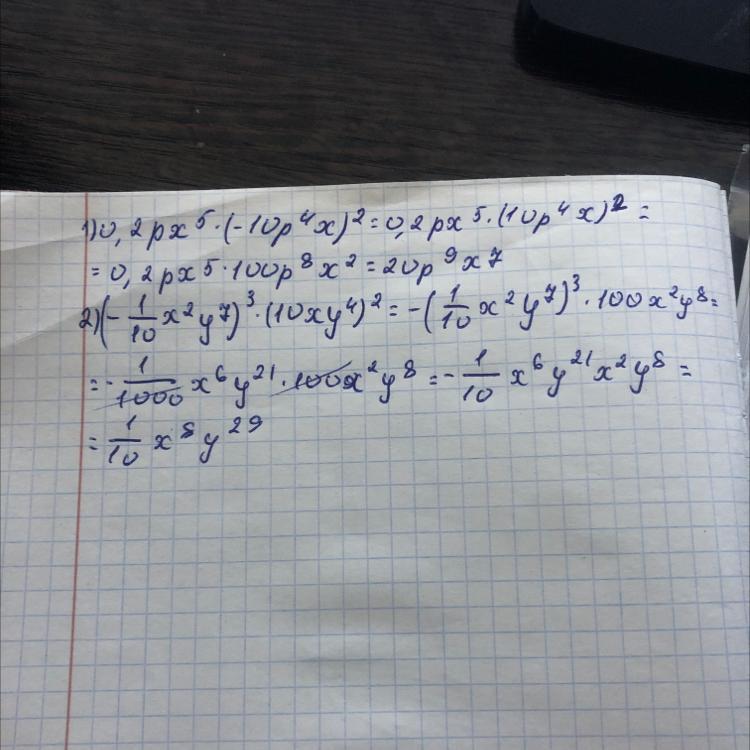 1) 0,2px⁵·(-10p⁴x)²=0,2px⁵·(10p⁴x)²=
=0,2px⁵·100p⁸x²=20p⁹x7
2)(-1/10x²y⁷)³·(10xy⁴)²=-(1/10x²y⁷)³·100x²y⁸=
=-1/1000x⁶y²¹·100x²y⁸=-1/10x⁶y²¹x²y⁸=
=1/10x⁸y²⁹